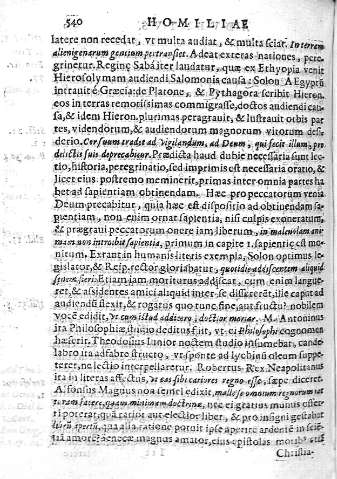 540 HOMILIAE
latere non recedat, vt multa audiat, & multa sciat. In terram
alienigenarum gentium pertransiet. Adeat exteras nationes, peregrinetur.
Reginę Sabá iter laudatur, quæ ex Ethyopia venit
Hierosolymam audiendi Salomonis causa: Solon Aegyptũ
intrauit è Græcia: de Platone, & Pythagora scribit Hieron.
eos in terras remotissimas commigrasse, doctos audiendi causa,
& idem Hieron. plurimas peragrauit, & lustrauit orbis partes,
videndorum, & audiendorum magnorum virorum desiderio.
Cor suum tradet ad vigilandum, ad Deum, qui fecit illum, pro
delictis suis deprecabitur. Prædicta haud dubie necessaria sunt lectio,
historia, peregrinatio, sed imprimis est necessaria oratio, &
licet eius postremo meminerit, primas inter omnia partes habet
ad sapientiam obtinendam. Hæc pro peccatorum venia
Deum precabitur, quia hæc est dispositio ad obtinendam sapientiam,
non enim ornat sapientia, nisi culpis exoneratum,
& prægraui peccatorum onere iam liberum, in maleuolam animam
non introibit sapientia, primum in capite 1. sapientiæ est monitum,
Extant in humanis literis exempla, Solon optimus legislator,
& Reip. rector gloriabatur, quotidie addiscentem aliquid
senem fieri: Etiam iam moriturus addijcat, cum enim langueret,
& assidentes amici aliquid inter se dissererẽt, ille caput ad
audiendũ flexit, & rogatus quo tunc fine, aut fructu? nobilem
vocẽ edidit, Vt cum istud addidero, doctior moriar. M. Antoninus
ita Philosophiæ studio deditus fuit, vt ei Philosophi cognomen
hæserit. Theodosius Iunior noctem studio insumebat, candelabro
ita ad fabre structo, vt sponte ad lychinũ oleum suppeteret,
ne lectio interpellaretur. Robertus Rex Neapolitanus
ita in literas affectus, vt eas sibi cariores regno esse, sæpe diceret.
Alfonsus Magnus non semel edixit, malle se omnium regnorum
iacturam facere, quam minimam doctrinæ, nec ei gratius munus offerri
poterat, quã ratio aut electior liber, & pro insigni gestabat
librũ apertũ, qua alia ratione potuit ipse aperire ardentẽ in scientiã
amorẽ? Senecæ magnus amator, eius epistolas
Christia-